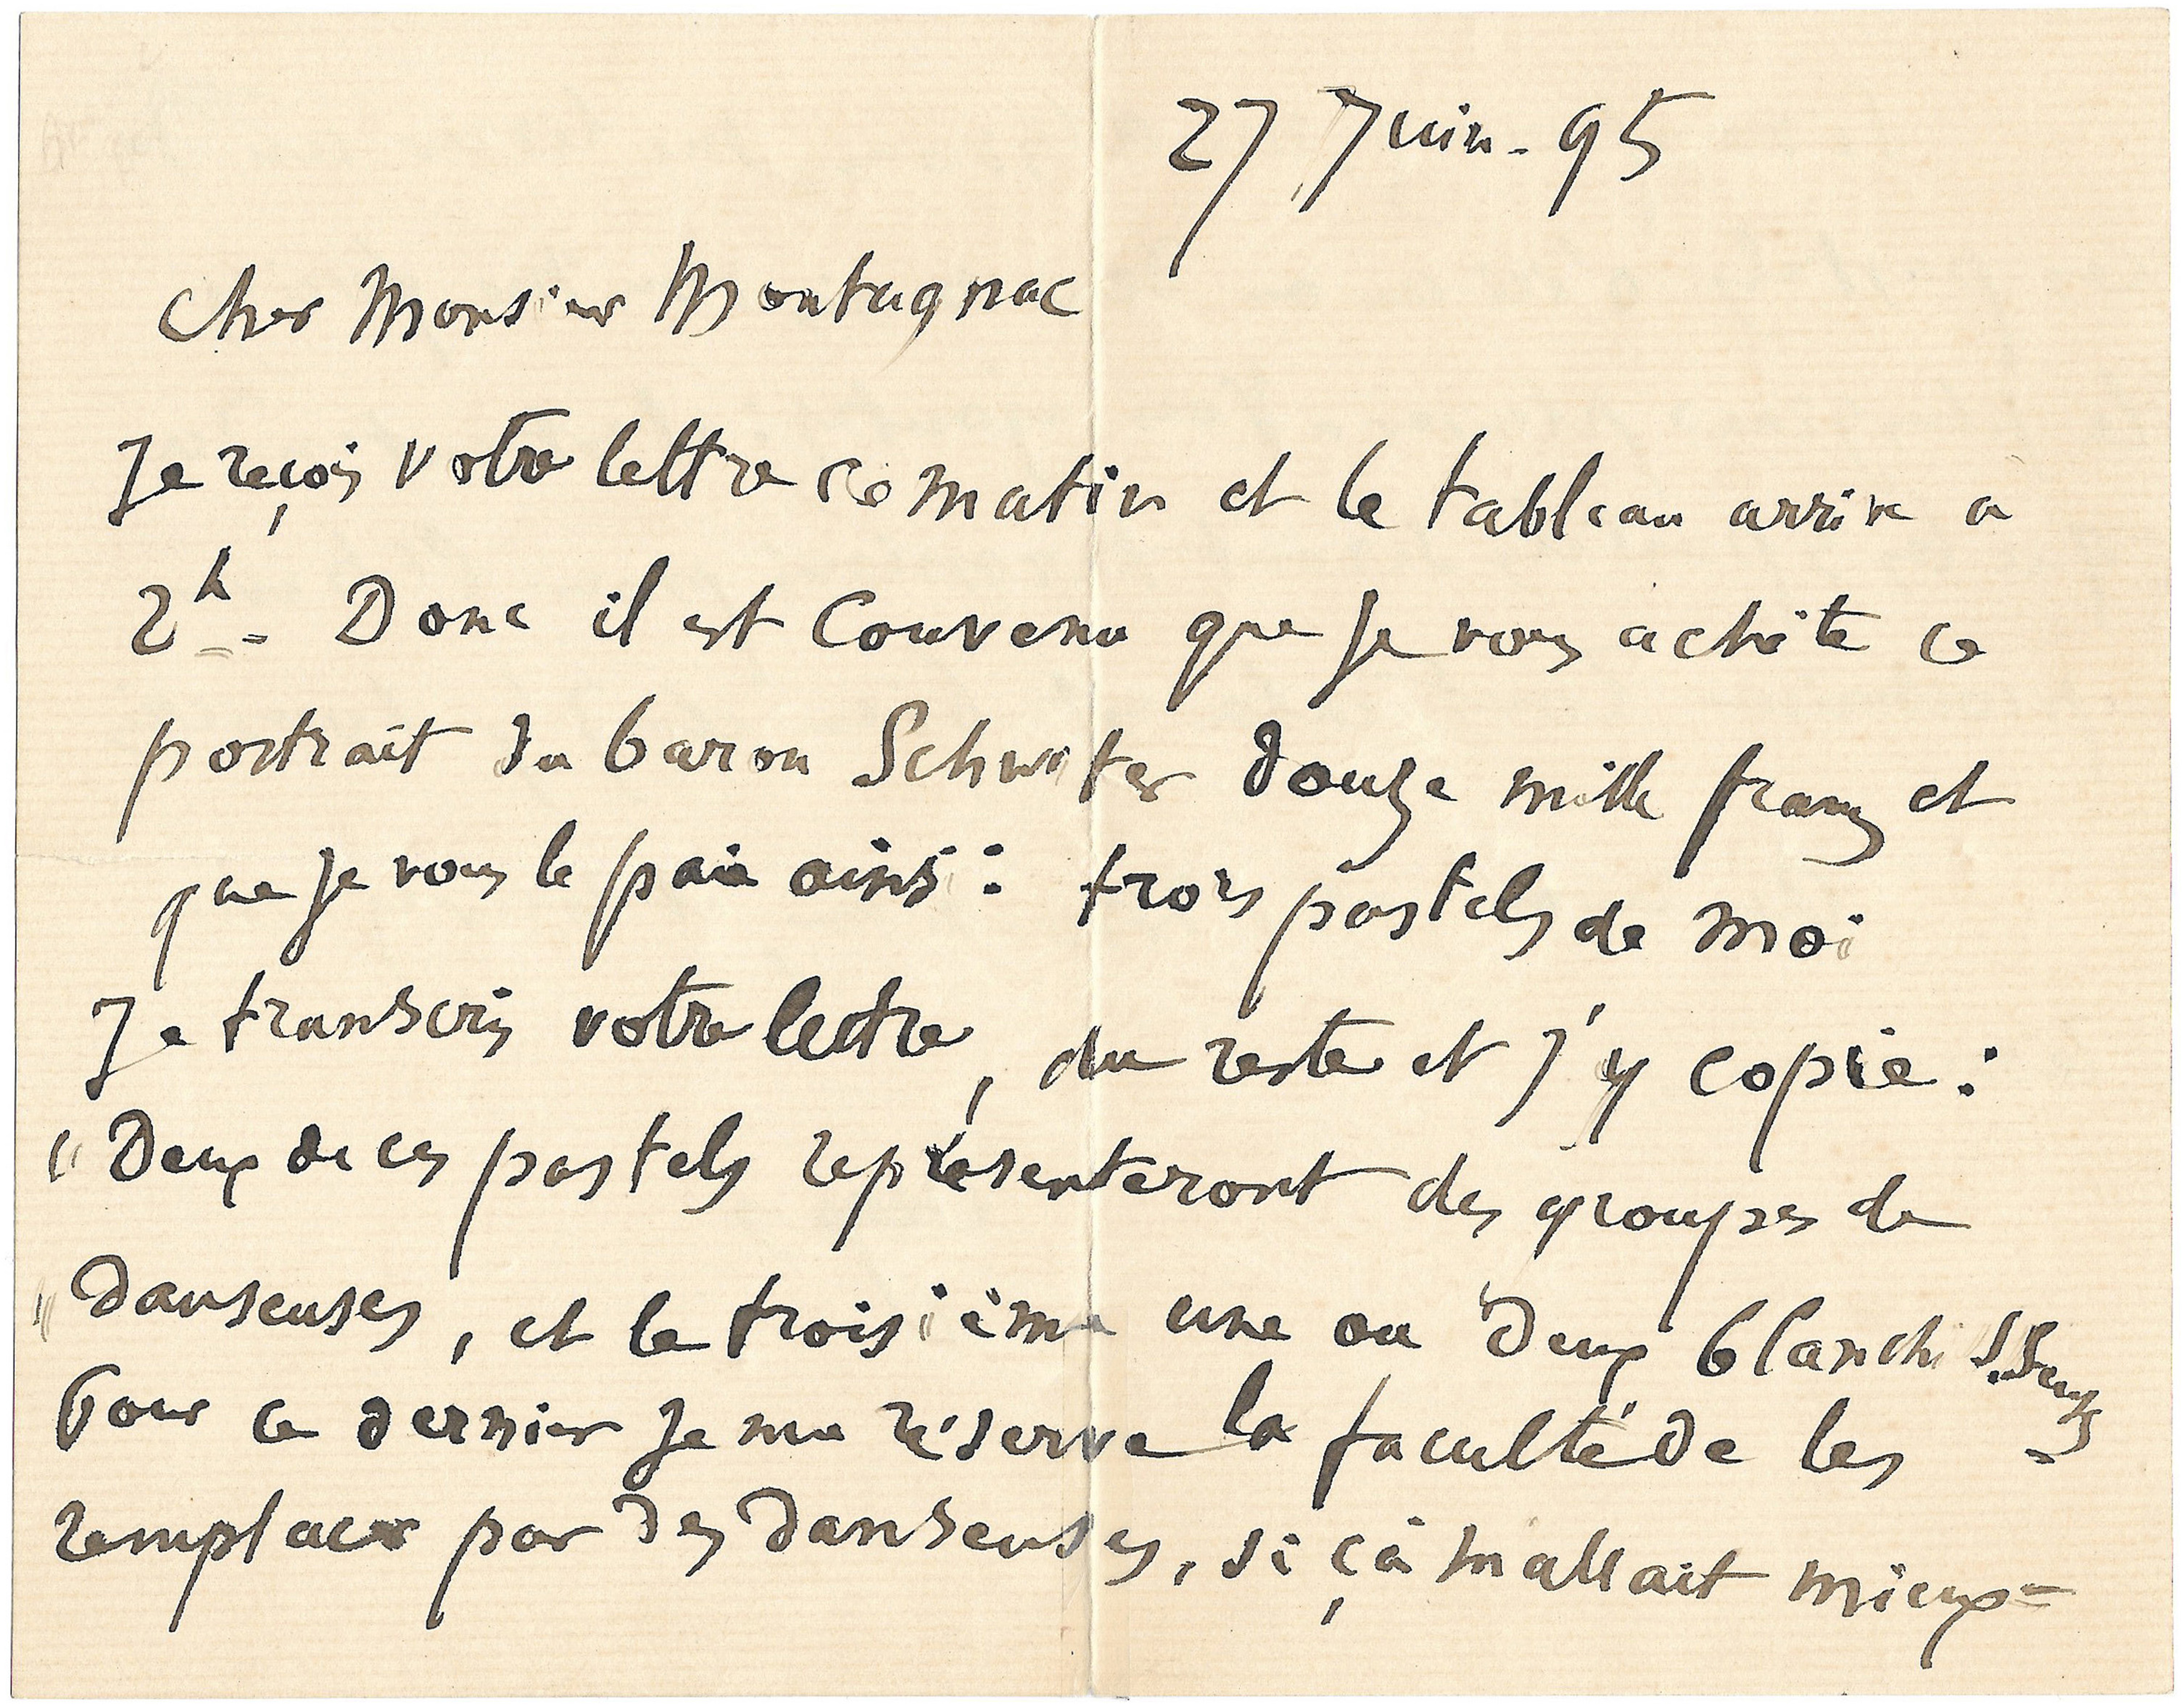 27 Juin - 95
Cher Monsieur Montagnac
Je reçois votre lettre ce matin et le tableau arrive a
2h = Donc il est convenu que je vous achète ce
portrait du baron Schwiter douze mille francs et
que je vous le paie ainsi : trois pastels de moi
Je transcris votre lettre, du reste et j'y copie :
"Deux de ces pastels représenteront des groupes de
"danseuses, et le troisième une ou deux blanchisseuses -
Pour ce dernier je me réserve la faculté de les
remplacer par des danseuses, si çà m'allait mieux =